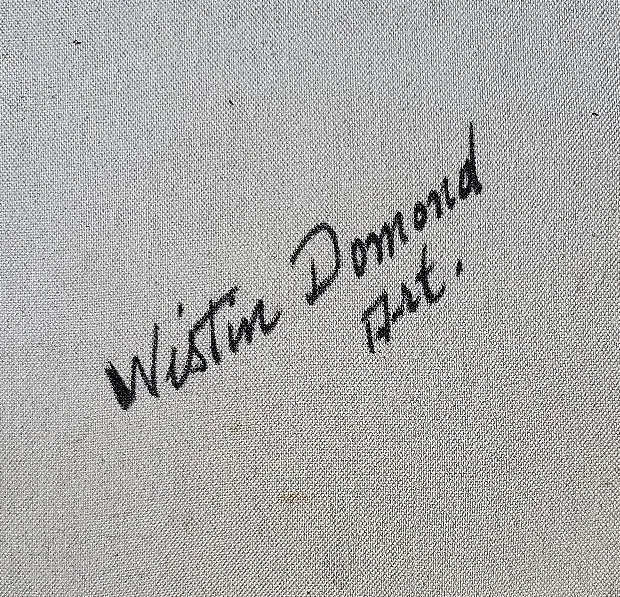 Wistin Domond
Art.